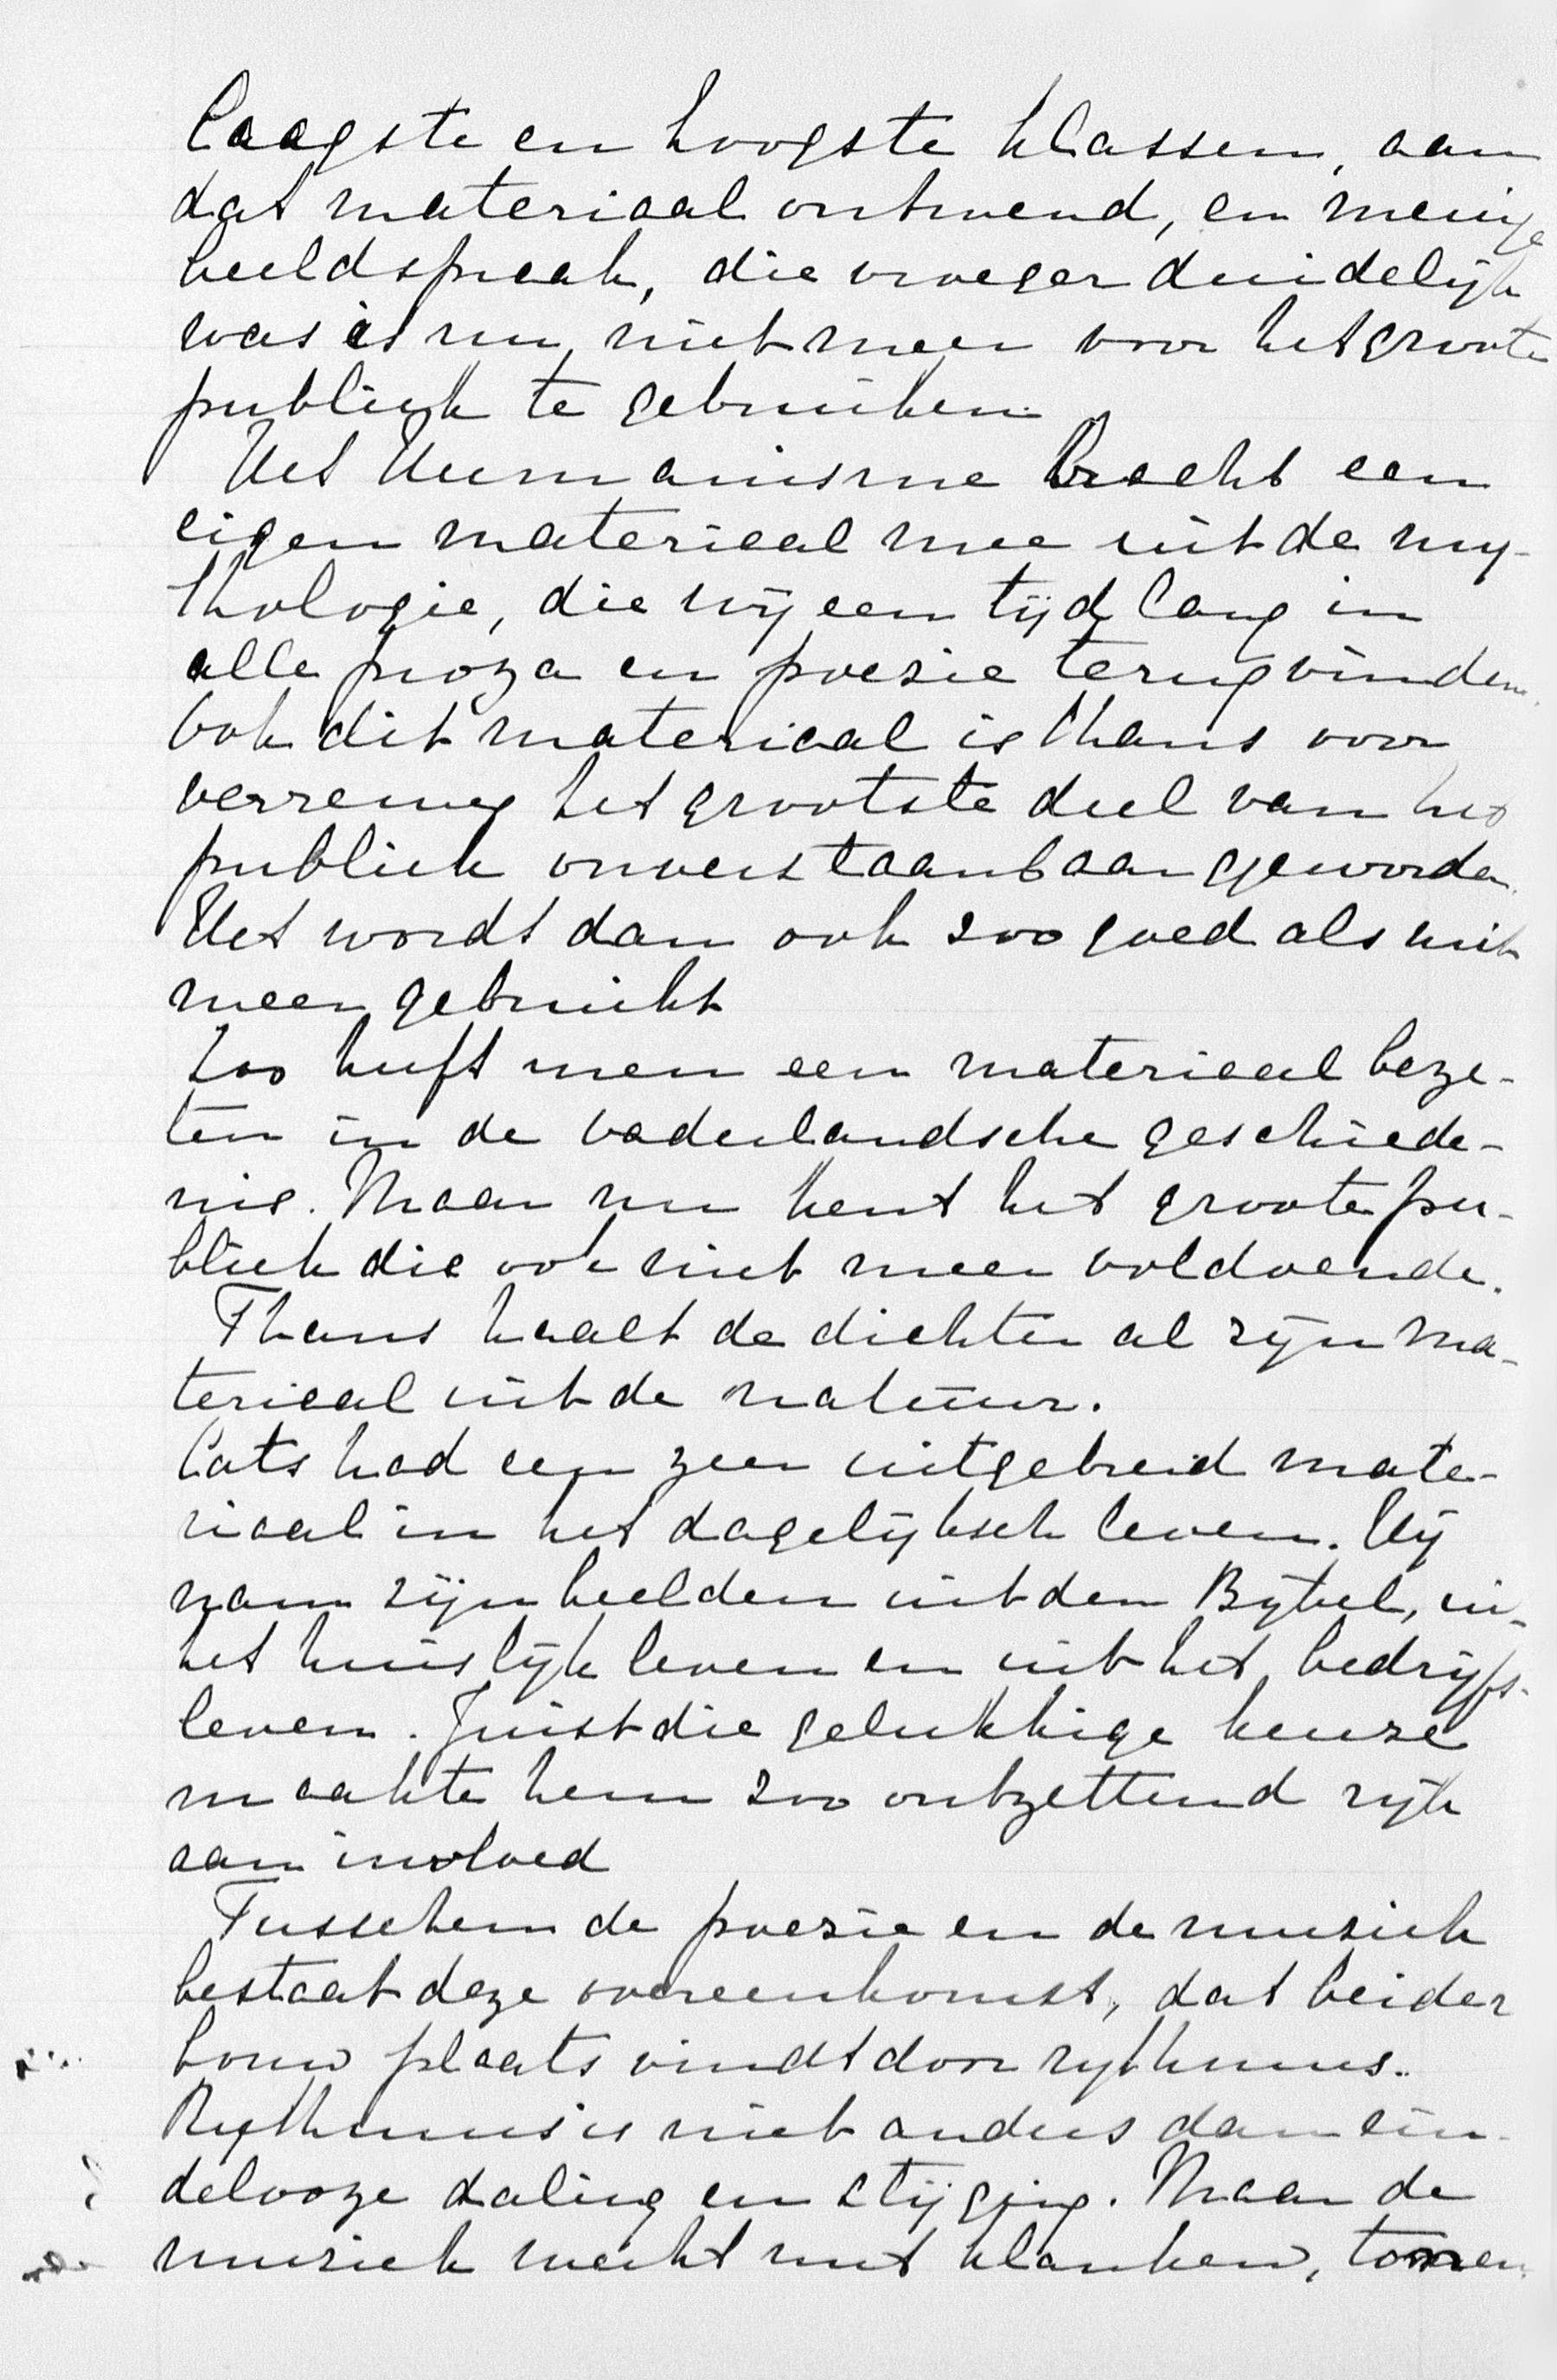 laagste en hoogste klassen, aan
dat materiaal ontwend, en menige
beeldspraak, die vroeger duidelijk
was is nu niet meer voor het groote
publiek te gebruiken.
Het Humanisme bracht een
eigen materiaal mee uit de my-
thologie, die wij een tijd lang in
alle proza en poezie terugvinden.
Ook dit materiaal is thans voor
verreweg het grootste deel van het
publiek onverstaanbaar geworden.
Het wordt dan ook zoo goed als niet
meer gebruikt
Zoo heeft men een materiaal beze-
ten in de vaderlandsche geschiede-
nis. Maar nu kent het groote pu-
bliek die ook niet meer voldoende.
Thans haalt de dichter al zijn ma-
teriaal uit de natuur.
Cats had een zeer uitgebreid mate-
riaal in het dagelijksch leven. Hij
nam zijn beelden uit den Bijbel, uit
het huislijk leven en uit het bedrijfs-
leven. Juist die gelukkige keuze
maakte hem zoo ontzettend rijk
aan invloed
Tusschen de poezie en de muziek
bestaat deze overeenkomst, dat beider
bouw plaats vindt door rythmus.
Rythmus is niet anders dan ein-
delooze daling en stijging. Maar de
muziek werkt met klanken, tonen